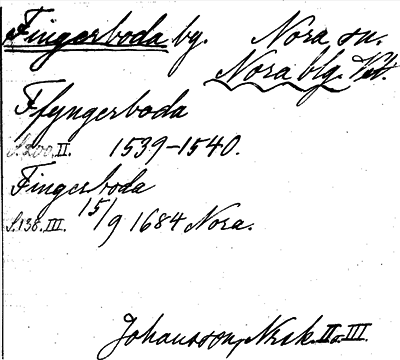 Fingerboda by. Nora sn.
Nora blg. Vstl.
Ffyngerboda
S.200.II. 1539-1540.
Fingerboda
S.138.III. 15/9 1684 Nora.
Johansson, Nrsk. II o. III.